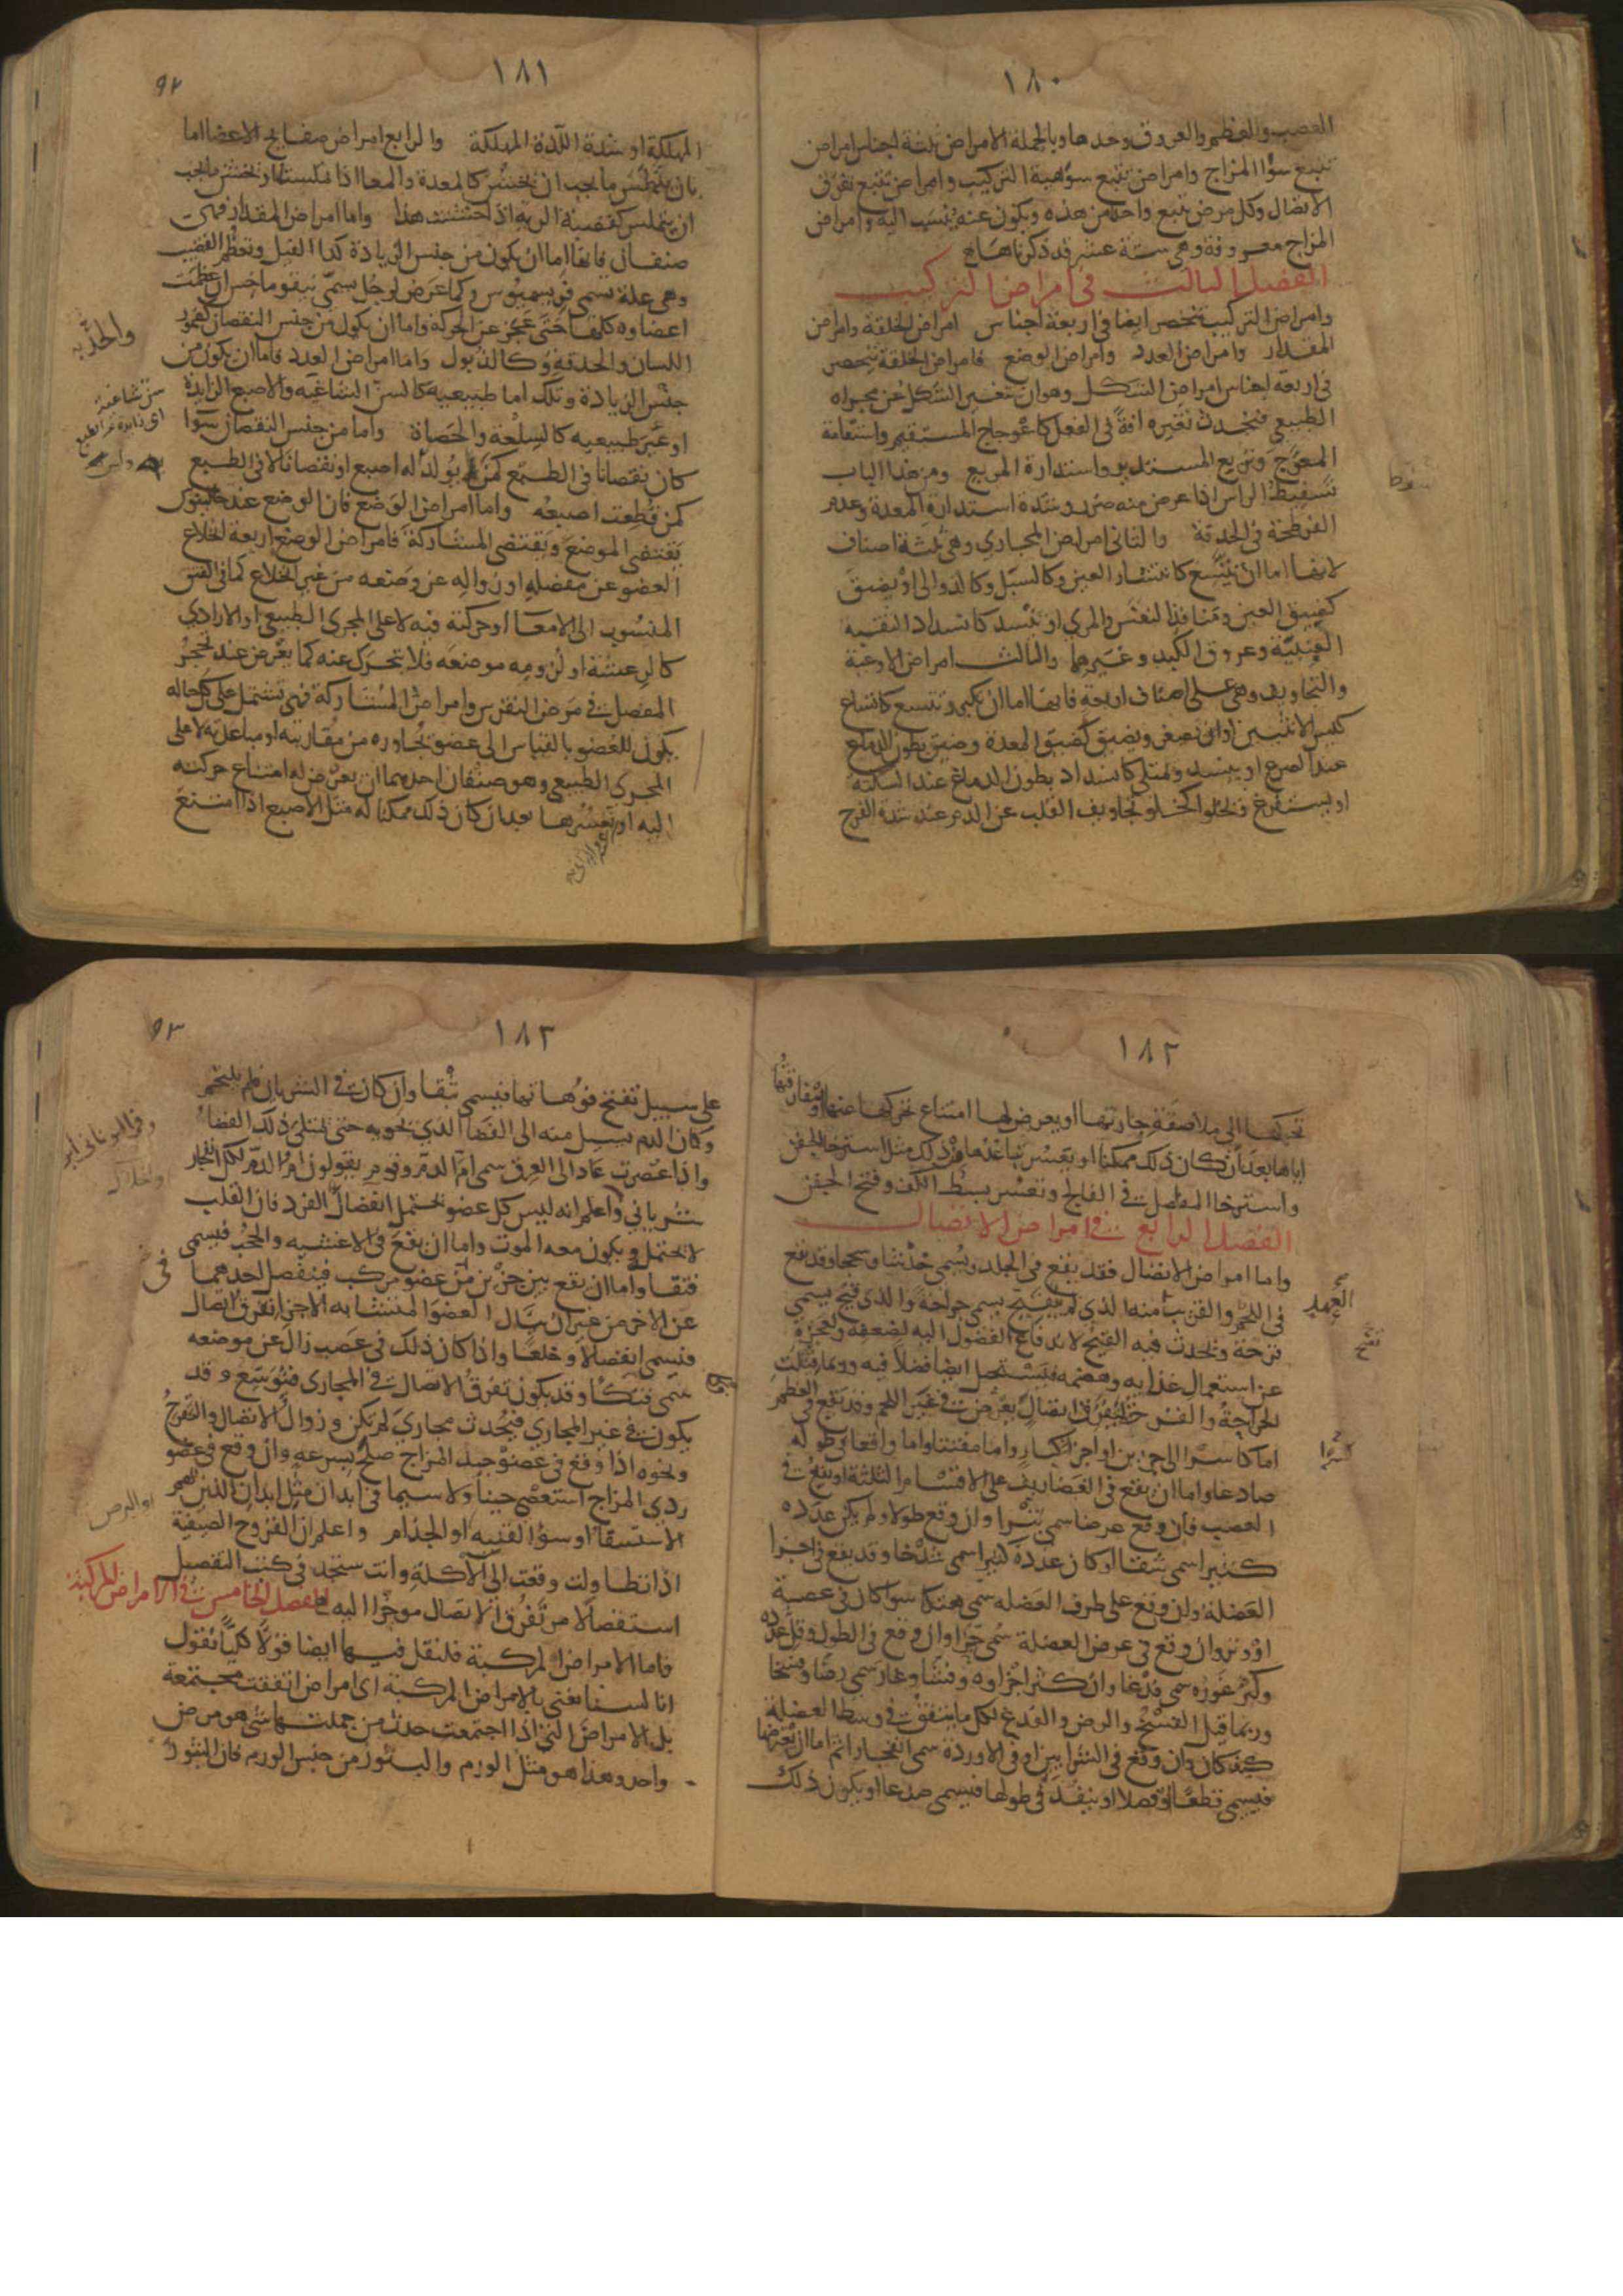 ١٨٠
العصب والعظم والعروق وحدها وبالجملة الامراض ثلثة اجناس امراض
تتبع سوء المزاج وامراض تتبع سوء هيية التركيب وامراض تتبع تفرق
الاتصال وكل مرض يتبع واحدا من هذه ويكون عنه ينسب اليه وامراض
المزاج معروفة وهى ستة عشر قد ذكرناها
الفصل الثالث فى امراض التركيب
وامراض التركيب تنحصر ايضا فى اربعة اجناس امراض الخلقة وامراض
المقدار وامراض العدد وامراض الوضع فامراض الخلقة تنحصر
فى اربعة اجناس امراض الشكل وهو ان يتغير الشكل عن مجراه
الطبيعى فيحدث تغيره افة فى الفعل كاعوجاج المستقيم واستقامة
المعوج وتربيع المستدير واستدارة المربع ومن هذا الباب
تسفيط الراس اذا عرض منه ضرر وشدة استدارة المعدة وعدم
الفرطحة فى الحدقة والثانى امراض المجارى وهى ثلثة اصناف
لانها اما ان تتسع كانتشار العين وكالسبل وكالدوالى او تضيق
كضيق العين ومنافذ النفس والمرى او تنسد كانسداد الثقبة
العنبية وعروق الكبد وغيرها والثالث امراض الاوعية
والتجاويف وهى على اصناف اربعة فانها اما ان تكبر وتتسع كاتساع
كيس الانثيين او ان تصغر وتضيق كضيق المعدة وضيق بطون الدماغ
عند الصرع او ينسد ويمتلى كانسداد بطون الدماغ عند السكتة
او يستفرغ ويخلو كخلو تجاويف القلب عن الدم عند شدة الفرح
١٨١
٩٢
المهلكة او شدة اللذة المهلكة والرابع امراض صفايح الاعضا اما
بان يتملس ما يجب ان يخشن كالمعدة والمعا اذا تملست او يخشن ما يجب
ان يتملس كقصبة الرية اذا خشنت هذا واما امراض المقدار فهى
صنفان فانها اما ان يكون من جنس الزيادة كدا الفيل وتعظم القضيب
وهى علة يسمى فريسميوس وكما عرض لرجل يسمى نيقوماخس ان عظمت
اعضاوه كلها حتى عجز عن الحركة واما ان يكون من جنس النقصان كضمور
اللسان والحدقة وكالذبول واما امراض العدد فاما ان يكون من
جنس الزيادة وتلك اما طبيعية كالسن الشاغية والاصبع الزايدة
او غير طبيعيه كالسلعة والحصاة واما من جنس النقصان سوا
كان نقصانا فى الطبع كمن لم يولد له اصبع او نقصانا لا فى الطبع
كمن قطعت اصبعه واما امراض الوضع فان الوضع عند جالينوس
يقتضى الموضع ويقتضى المشاركة فامراض الوضع اربعة انخلاع
العضو عن مفصله او زواله عن وضعه من غير انخلاع كما فى الفتق
المنسوب الى الامعا او حركة فيه لا على المجرى الطبيعى او الارادى
كالرعشة او لزومه موضعه فلا يتحرك عنه كما يعرض عند تحجر
المفصل فى مرض النقرس وامراض المشاركة فهى تشتمل على كل حاله
يكون للعضو بالقياس الى عضو يجاوره من مقاربته او مباعدته لا على
المجرى الطبيعى وهو صنفان احدهما ان يعرض له امتناع حركته
اليه او تعسرها بعد ان كان ذلك ممكنا له مثل الاصبع اذا امتنع
سن شاغية
١٨٢
تحركها الى ملاصقة جارتها او يعرض لها امتناع تحركها عنها ومفارقتها
اياها بعد ان كان ذلك ممكنا او يعسر تباعدها وذلك مثل استرخا الجفن
واسترخا المفاصل فى الفالج وتعسر بسط الكف وفتح الجفن
الفصل الرابع فى امراض الاتصال
واما امراض الاتصال فقد يقع فى الجلد ويسمى خدشا وسحجا وقد يقع
فى اللحم والقريب منه الذى لم يتقيح يسمى جراحة والذى قيح يسمى
قرحة ويحدث فيه القيح لاندفاع الفضول اليه لضعفه ولعجزه
عن استعمال غذايه وهضمه فيستحيل ايضا فضلا فيه وربما قيلت
الجراحة والقرحة لتفرق اتصال يعرض فى غير اللحم وقد يقع فى العظم
اما كاسرا الى جزئين او اجزا كبار واما مفتتا واما واقعا فى طوله
صادعا واما ان يقع فى الغضاريف على الاقسام الثلثة او يقع فى
العصب فان وقع عرضا سمى بترا وان وقع طولا ولم يكن عدده
كثيرا سمى شقا او كان عدده كثيرا سمى شدخا وقد يقع فى اجزا
العضلة وان وقع على طرف العضله سمى هتكا سوا كان فى عصبة
او وتر وان وقع فى عرض العضلة سمى جزا وان وقع فى الطول وقل عدده
وكبر غوره سمى فدغا وان كثر اجزاوه وفشا وغار سمى رضا وفسخا
وربما قيل الفسخ والرض والفدغ لكل ما يتفق فى وسط العضلة
كيف كان وان وقع فى الشرايين او فى الاوردة سمى انفجارا ثم اما ان يعترضها
فيسمى قطعا وفصلا او ينفذ فى طولها فيسمى صدعا او يكون ذلك
١٨٣
٩٣
على سبيل تفتح فوهاتها فيسمى بثقا وان كان فى الشريان فلم يلتحم
وكان الدم يسيل منه الى الفضا الذى يحويه حتى يمتلى ذلك الفضا
واذا عصرت عاد الى العرق سمى ام الدم وقوم يقولون ام الدم لكل انفجار
شريانى واعلم انه ليس كل عضو يحتمل انحلال الفرد فان القلب
لا يحتمله ويكون معه الموت واما ان يقع فى الاغشيه والحجب فيسمى
فتقا واما ان يقع بين جزئين من عضو مركب فينفصل احدهما
عن الاخر من غير ان ينال العضو المتشابه الاجزا تفرق اتصال
فيسمى انفصالا وخلعا واذا كان ذلك فى عصب زال عن موضعه
سمى فكا وقد يكون تفرق الاتصال فى المجارى فيوسع وقد
يكون فى غير المجارى فيحدث مجارى لم تكن وزوال الاتصال والتقرح
ونحوه اذا وقع فى عضو جيد المزاج صلح بسرعه وان وقع فى عضو
ردى المزاج استعصى حينا ولا سيما فى ابدان مثل ابدان الذين بهم
الاستسقا او سوء القنيه او الجذام واعلم ان القروح الصيفية
اذا تطاولت وقعت الى الآكلة وانت ستجد فى كتب التفصيل
استفصالا من تفرق الاتصال موجزا اليه
الفصل الخامس فى الامراض المركبة
فاما الامراض المركبة فلنقل فيها ايضا قولا كليا نقول
انا لسنا نعنى بالامراض المركبة اى امراض اتفقت مجتمعة
بل الامراض التى اذا اجتمعت حدث من جملتها شى هو مرض
واحد وهذا هو مثل الورم والبثور من جنس الورم فان البثور